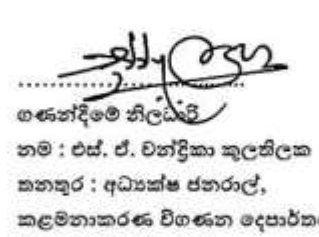 ගණන්දීමේ නිලධාරි
නම : එස්. ඒ. චන්ද්‍රිකා කුලතිලක
තනතුර : අධ්‍යක්ෂ ජනරාල්,
කළමනාකරණ විගණන දෙපාර්ත